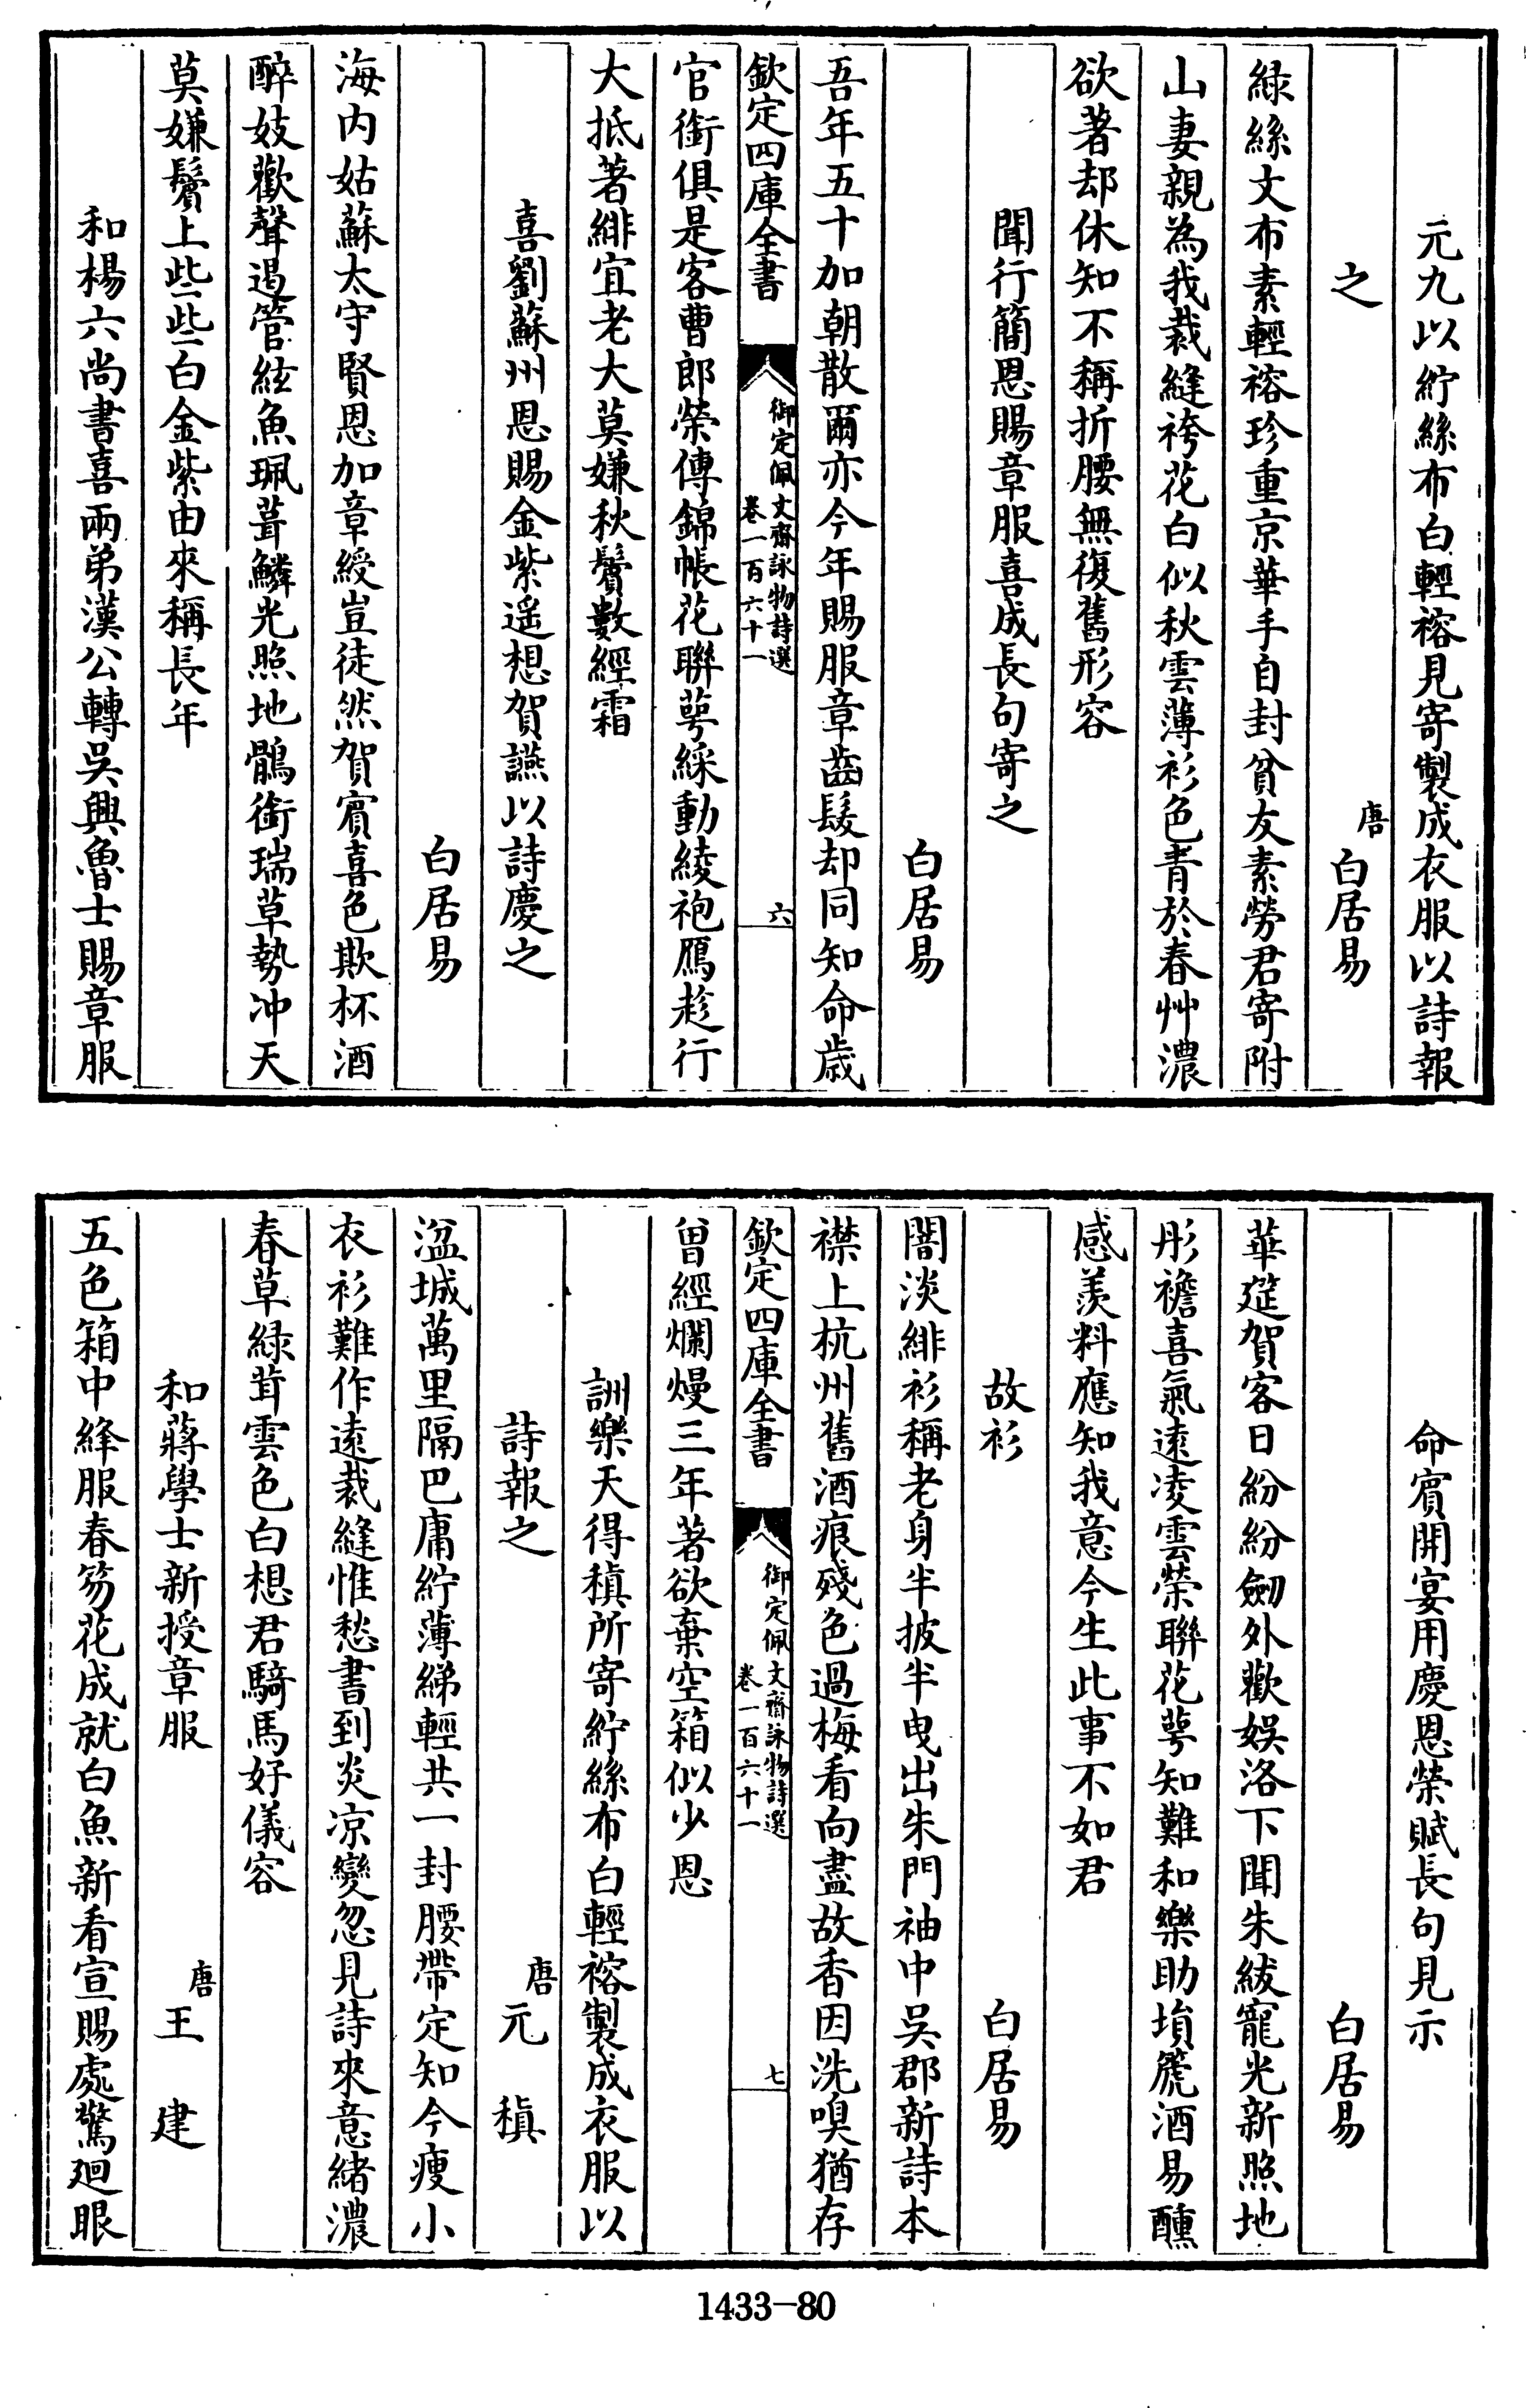 元九以紵絲布白輕褣見寄製成衣服以詩報
之　唐白居易
綠絲文布素輕褣珍重京華手自封貧友素勞君寄附
山妻親為我裁縫袴花白似秋雲薄衫色青於春艸濃
欲著却休知不稱折腰無復舊形容
聞行簡恩賜章服喜成長句寄之
白居易
吾年五十加朝散爾亦今年賜服章齒髮却同知命歲
欽定四庫全書　御定佩文齋詠物詩選　卷一百六十一　六
官銜俱是客曹郎榮傳錦帳花聯萼綵動綾袍鴈趁行
大抵著緋宜老大莫嫌秋鬢數經霜
喜劉蘇州恩賜金紫遥想賀讌以詩慶之
白居易
海內姑蘇太守賢恩加章綬豈徒然賀賓喜色欺杯酒
醉妓歡聲遏管絃魚珮葺鱗光照地鶻銜瑞草勢冲天
莫嫌鬢上些些白金紫由來稱長年
和楊六尚書喜兩弟漢公轉吳興魯士賜章服
命賓開宴用慶恩榮賦長句見示
白居易
華筵賀客日紛紛劒外歡娛洛下聞朱紱寵光新照地
彤襜喜氣遠凌雲榮聯花萼知難和樂助塤篪酒易醺
感羨料應知我意今生此事不如君
故衫　白居易
闇淡緋衫稱老身半披半曳出朱門袖中吳郡新詩本
襟上杭州舊酒痕殘色過梅看向盡故香因洗嗅猶存
欽定四庫全書　御定佩文齋詠物詩選　卷一百六十一　七
曾經爛熳三年著欲棄空箱似少恩
詶樂天得稹所寄紵絲布白輕褣製成衣服以
詩報之　唐元稹
湓城萬里隔巴庸紵薄綈輕共一封腰帶定知今瘦小
衣衫難作遠裁縫惟愁書到炎凉變忽見詩來意緒濃
春草綠茸雲色白想君騎馬好儀容
和蔣學士新授章服　唐王建
五色箱中絳服春笏花成就白魚新看宣賜處驚迴眼
1433-80